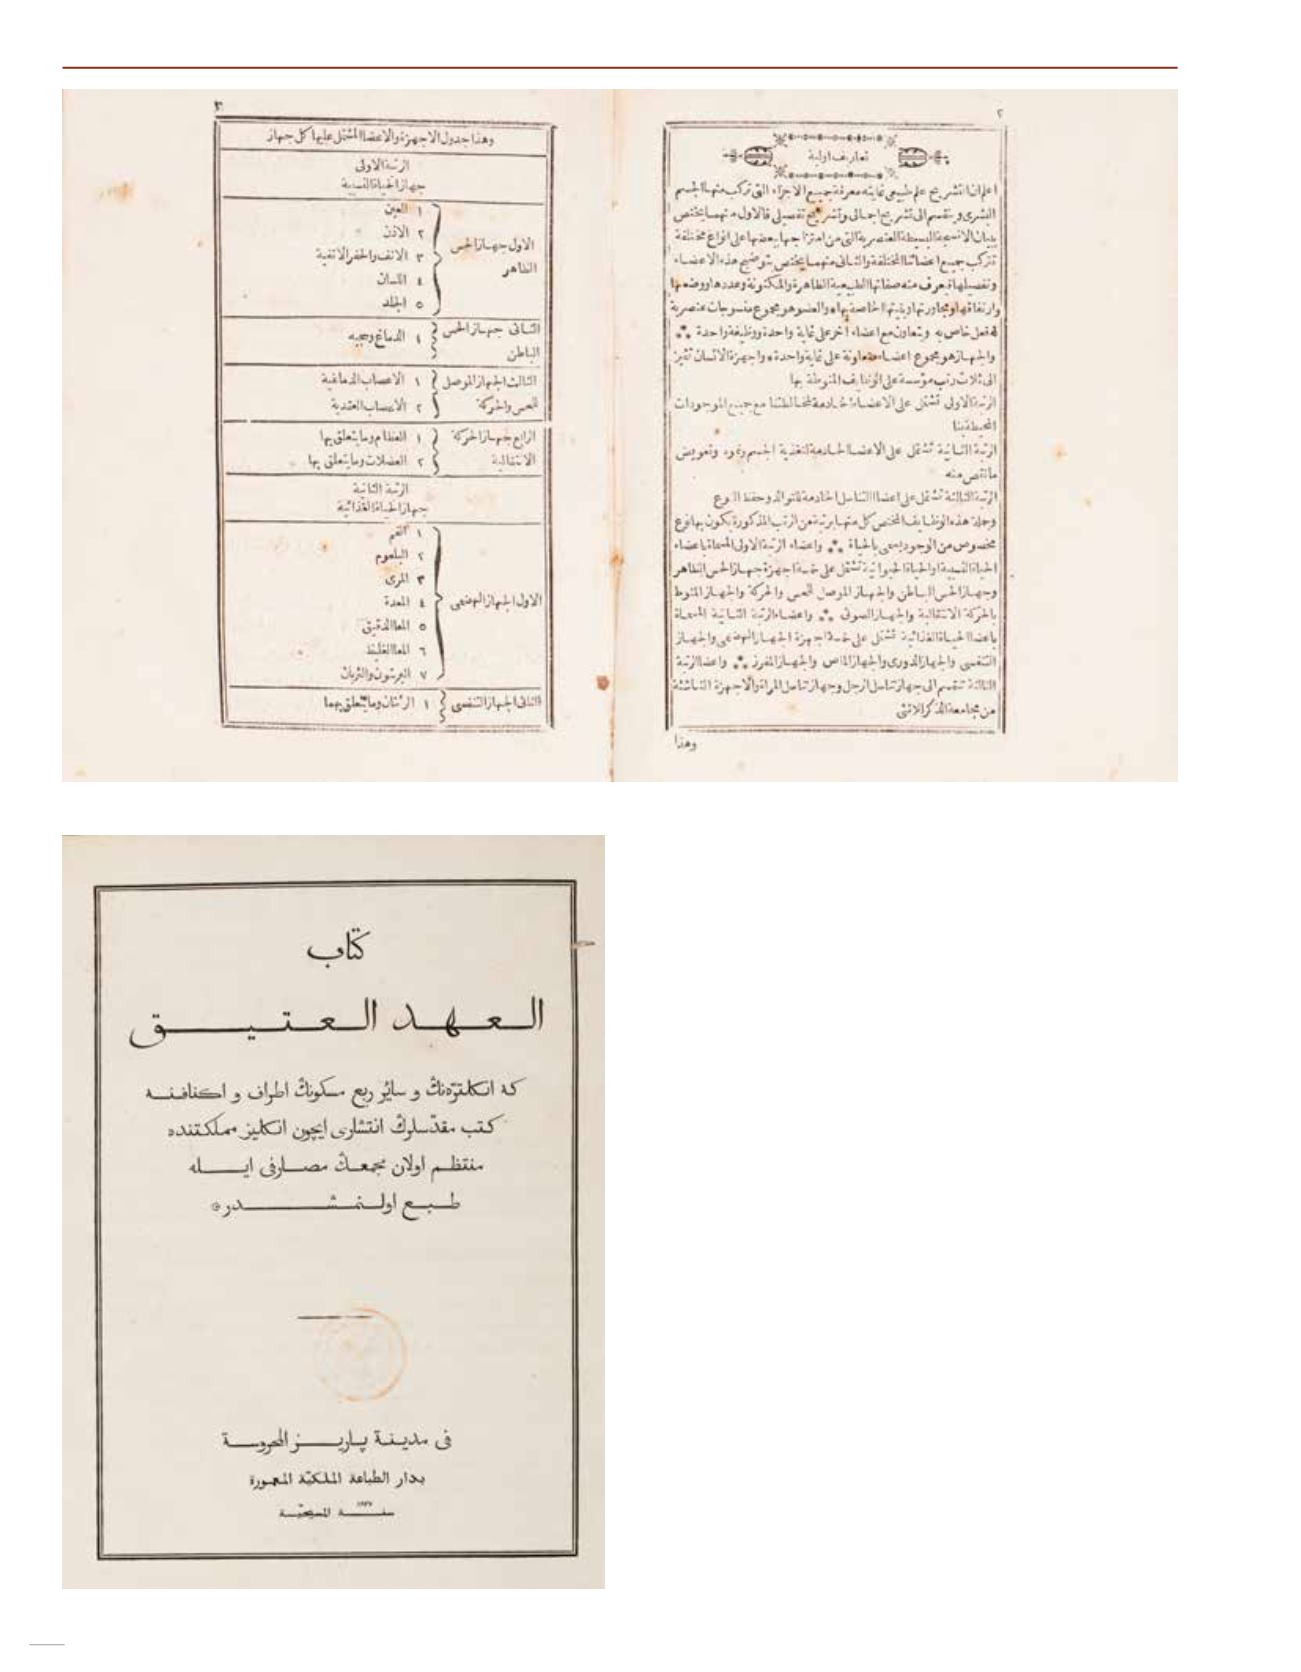 ٢
تعاريف اولية
اعلم ان التشريح علم طبيعى غايته معرفة جميع الاجزاء التى تركب منها الجسم
البشرى وينقسم الى تشريح اجمالى وتشريح تفصيلى فالاول منهما يختص
ببيان الانسجة البسيطة العنصرية التى من امتزاجها ببعضها على انواع مختلفة
تتركب جميع اعضائنا المختلفة والثانى منهما يختص بتوضيح هذه الاعضاء
وتفصيلها فيعرف منه صفاتها الطبيعية الظاهرة والمكنونة وعددها ووضعها
وارتفاقها ومجاورتها وبنيتها الخاصة بها والعضو هو مجموع منسوجات عنصرية
له فعل خاص به ويتعاون مع اعضاء اخر على غاية واحدة ووظيفة واحدة
والجهاز هو مجموع اعضاء متعاونة على غاية واحدة واجهزة الانسان تتميز
الى ثلاث رتب مؤسسة على الوظايف المنوطة بها
الرتبة الاولى تشتمل على الاعضاء الخادمة لمخالطتنا مع جميع الموجودات
المحيطة بنا
الرتبة الثانية تشتمل على الاعضا الخادمة لتغذية الجسم ونموه وتعويض
ما نقص منه
الرتبة الثالثة تشتمل على اعضا التناسل الخادمة للتوالد وحفظ النوع
وجملة هذه الوظايف المختص كل منها برتبة من الرتب المذكورة يكون بها نوع
مخصوص من الوجود يسمى بالحياة واعضاء الرتبة الاولى المسماة باعضاء
الحياة النسبية او الحياة الحيوانية تشتمل على خمسة اجهزة جهاز الحس الظاهر
وجهاز الحس الباطن والجهاز الموصل للحس والحركة والجهاز المنوط
بالحركة الانتقالية والجهاز الصوتى واعضاء الرتبة الثانية المسماة
باعضا الحياة الغذائية تشتمل على خمسة اجهزة الجهاز الهضمى والجهاز
التنفسى والجهاز الدورى والجهاز الماص والجهاز المفرز واعضا الرتبة
الثالثة تنقسم الى جهاز تناسل الرجل وجهاز تناسل المراة والاجهزة الناشئة
من مجامعة الذكر الانثى
وهذا
٣
وهذا جدول الاجهزة والاعضا المشتمل عليها كل جهاز
الرتبة الاولى
جهاز الحياة النسبية
الاول جهاز الحس الظاهر
١ العين
٢ الاذن
٣ الانف والحفر الانفية
٤ اللسان
٥ الجلد
الثانى جهاز الحس الباطن
١ الدماغ وحجبه
الثالث الجهاز الموصل للحس والحركة
١ الاعصاب الدماغية
٢ الاعصاب العقدية
الرابع جهاز الحركة الانتقالية
١ العظام وما يتعلق بها
٢ العضلات وما يتعلق بها
الرتبة الثانية
جهاز الحياة الغذائية
الاول الجهاز الهضمى
١ الفم
٢ البلعوم
٣ المرى
٤ المعدة
٥ المعا الدقيق
٦ المعا الغليظ
٧ البريتون والثربان
الثانى الجهاز التنفسى
١ الرئتان وما يتعلق بهما
كتاب
العهد العتيق
كه انكلترەنڭ و سائر ربع مسكونڭ اطراف و اكنافنه
كتب مقدّسلرڭ انتشارى ايچون انكليز مملكتنده
منتظم اولان مجمعڭ مصارفى ايله
طبع اولنمشدر
فى مدينة پاريز المحروسة
بدار الطباعة الملكيّة المعمورة
سنة ١٨٢٧ المسيحيّة